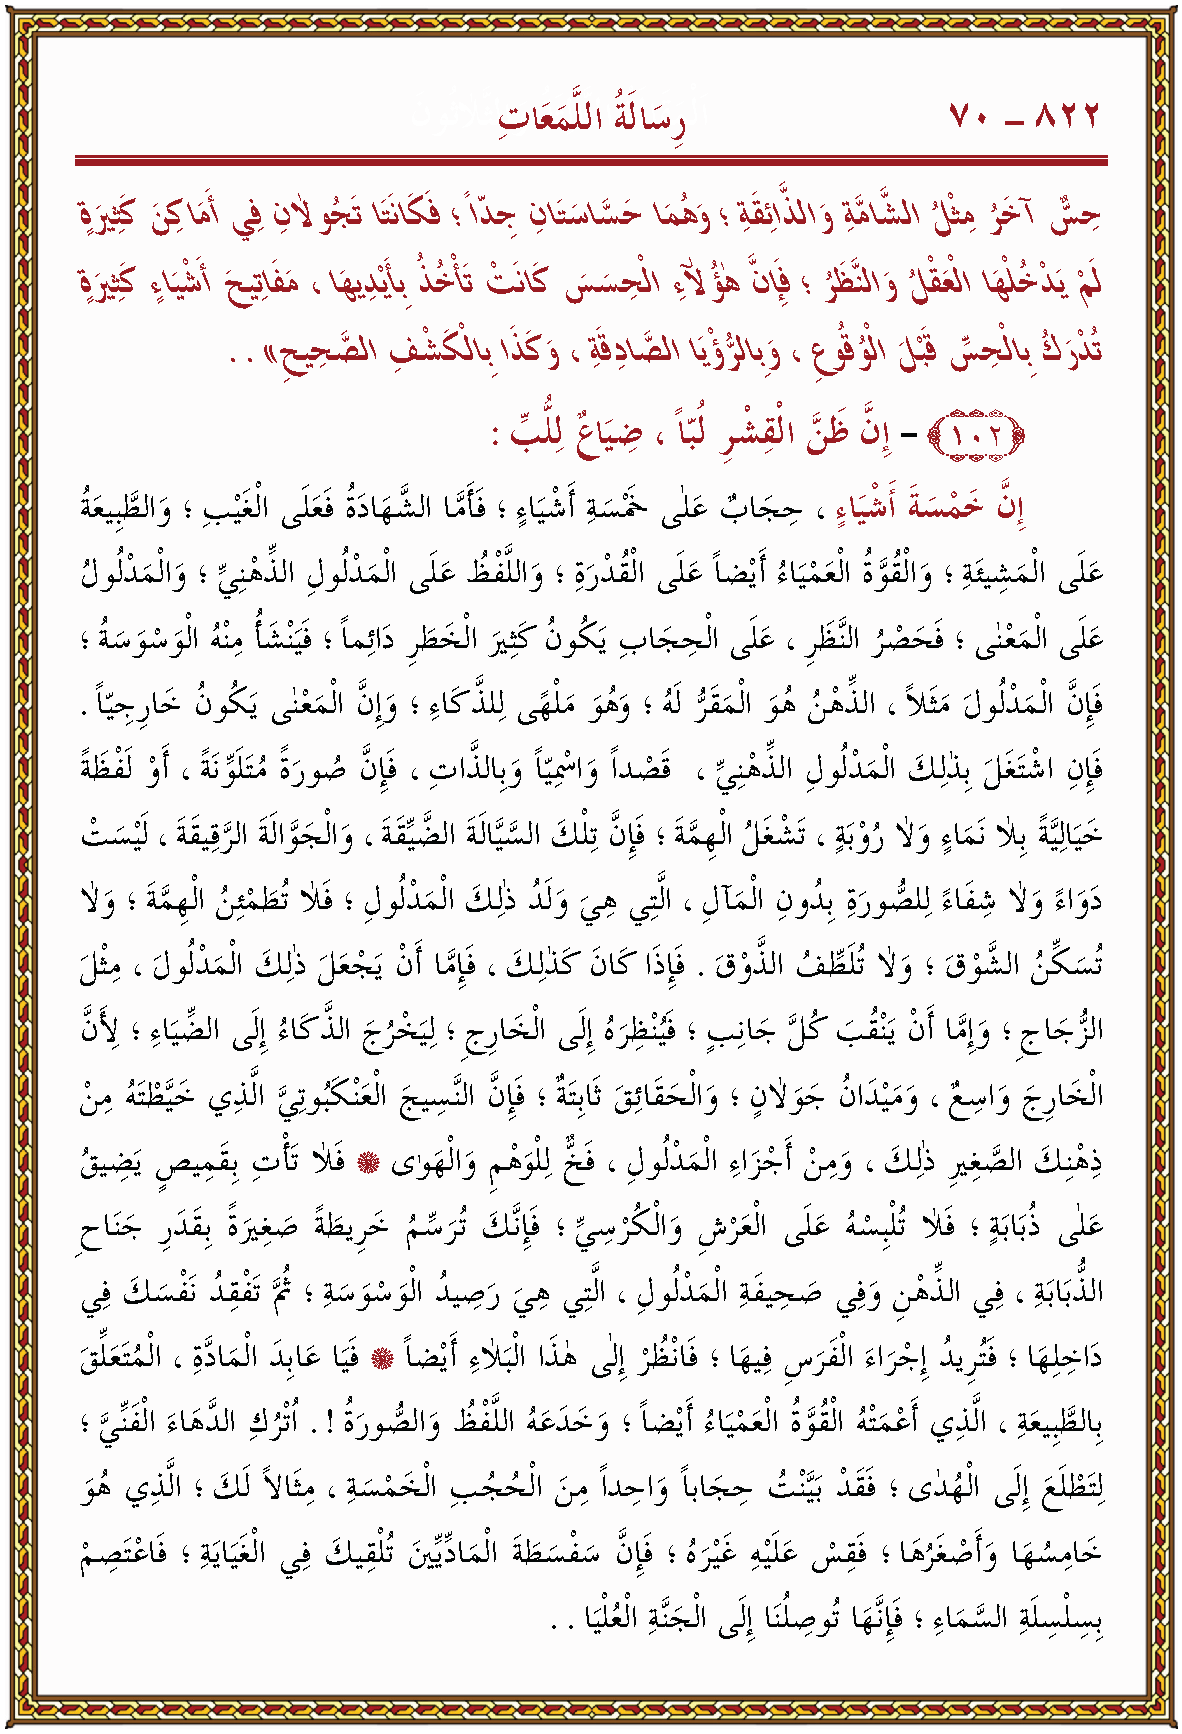 ٨٢٢ – ٧٠ رِسَالَةُ اللَّمَعَاتِ
حِسٌّ آخَرُ مِثْلُ الشَّامَّةِ وَالذَّائِقَةِ ؛ وَهُمَا حَسَّاسَتَانِ جِدّاً ؛ فَكَانَتَا تَجُولَانِ فِي أَمَاكِنَ كَثِيرَةٍ
لَمْ يَدْخُلْهَا الْعَقْلُ وَالنَّظَرُ ؛ فَإِنَّ هٰؤُلَآءِ الْحِسَسَ كَانَتْ تَأْخُذُ بِأَيْدِيهَا ، مَفَاتِيحَ أَشْيَاءٍ كَثِيرَةٍ
تُدْرَكُ بِالْحِسِّ قَبْلَ الْوُقُوعِ ، وَبِالرُّؤْيَا الصَّادِقَةِ ، وَكَذَا بِالْكَشْفِ الصَّحِيحِ» . .
﴿١٠٢﴾ – إِنَّ ظَنَّ الْقِشْرِ لُبّاً ، ضِيَاعٌ لِلُّبِّ :
إِنَّ خَمْسَةَ أَشْيَاءٍ ، حِجَابٌ عَلٰى خَمْسَةِ أَشْيَاءٍ ؛ فَأَمَّا الشَّهَادَةُ فَعَلَى الْغَيْبِ ؛ وَالطَّبِيعَةُ
عَلَى الْمَشِيئَةِ ؛ وَالْقُوَّةُ الْعَمْيَاءُ أَيْضاً عَلَى الْقُدْرَةِ ؛ وَاللَّفْظُ عَلَى الْمَدْلُولِ الذِّهْنِيِّ ؛ وَالْمَدْلُولُ
عَلَى الْمَعْنٰى ؛ فَحَصْرُ النَّظَرِ ، عَلَى الْحِجَابِ يَكُونُ كَثِيرَ الْخَطَرِ دَائِماً ؛ فَيَنْشَأُ مِنْهُ الْوَسْوَسَةُ ؛
فَإِنَّ الْمَدْلُولَ مَثَلاً ، الذِّهْنُ هُوَ الْمَقَرُّ لَهُ ؛ وَهُوَ مَلْهًى لِلذَّكَاءِ ؛ وَإِنَّ الْمَعْنٰى يَكُونُ خَارِجِيّاً .
فَإِنِ اشْتَغَلَ بِذٰلِكَ الْمَدْلُولِ الذِّهْنِيِّ ، قَصْداً وَاسْمِيّاً وَبِالذَّاتِ ، فَإِنَّ صُورَةً مُتَلَوِّنَةً ، أَوْ لَفْظَةً
خَيَالِيَّةً بِلَا نَمَاءٍ وَلَا رُوْبَةٍ ، تَشْغَلُ الْهِمَّةَ ؛ فَإِنَّ تِلْكَ السَّيَّالَةَ الضَّيِّقَةَ ، وَالْجَوَّالَةَ الرَّقِيقَةَ ، لَيْسَتْ
دَوَاءً وَلَا شِفَاءً لِلصُّورَةِ بِدُونِ الْمَآلِ ، الَّتِي هِيَ وَلَدُ ذٰلِكَ الْمَدْلُولِ ؛ فَلَا تُطَمْئِنُ الْهِمَّةَ ؛ وَلَا
تُسَكِّنُ الشَّوْقَ ؛ وَلَا تُلَطِّفُ الذَّوْقَ . فَإِذَا كَانَ كَذٰلِكَ ، فَإِمَّا أَنْ يَجْعَلَ ذٰلِكَ الْمَدْلُولَ ، مِثْلَ
الزُّجَاجِ ؛ وَإِمَّا أَنْ يَنْقُبَ كُلَّ جَانِبٍ ؛ فَيُنْظِرَهُ إِلَى الْخَارِجِ ؛ لِيَخْرُجَ الذَّكَاءُ إِلَى الضِّيَاءِ ؛ لِأَنَّ
الْخَارِجَ وَاسِعٌ ، وَمَيْدَانُ جَوَلَانٍ ؛ وَالْحَقَائِقَ ثَابِتَةٌ ؛ فَإِنَّ النَّسِيجَ الْعَنْكَبُوتِيَّ الَّذِي خَيَّطْتَهُ مِنْ
ذِهْنِكَ الصَّغِيرِ ذٰلِكَ ، وَمِنْ أَجْزَاءِ الْمَدْلُولِ ، فَخٌّ لِلْوَهْمِ وَالْهَوٰى ۞ فَلَا تَأْتِ بِقَمِيصٍ يَضِيقُ
عَلٰى ذُبَابَةٍ ؛ فَلَا تُلْبِسْهُ عَلَى الْعَرْشِ وَالْكُرْسِيِّ ؛ فَإِنَّكَ تُرَسِّمُ خَرِيطَةً صَغِيرَةً بِقَدَرِ جَنَاحِ
الذُّبَابَةِ ، فِي الذِّهْنِ وَفِي صَحِيفَةِ الْمَدْلُولِ ، الَّتِي هِيَ رَصِيدُ الْوَسْوَسَةِ ؛ ثُمَّ تَفْقِدُ نَفْسَكَ فِي
دَاخِلِهَا ؛ فَتُرِيدُ إِجْرَاءَ الْفَرَسِ فِيهَا ؛ فَانْظُرْ إِلٰى هٰذَا الْبَلَاءِ أَيْضاً ۞ فَيَا عَابِدَ الْمَادَّةِ ، الْمُتَعَلِّقَ
بِالطَّبِيعَةِ ، الَّذِي أَعْمَتْهُ الْقُوَّةُ الْعَمْيَاءُ أَيْضاً ؛ وَخَدَعَهُ اللَّفْظُ وَالصُّورَةُ ! . اُتْرُكِ الدَّهَاءَ الْفَنِّيَّ ؛
لِتَطْلَعَ إِلَى الْهُدٰى ؛ فَقَدْ بَيَّنْتُ حِجَاباً وَاحِداً مِنَ الْحُجُبِ الْخَمْسَةِ ، مِثَالاً لَكَ ؛ الَّذِي هُوَ
خَامِسُهَا وَأَصْغَرُهَا ؛ فَقِسْ عَلَيْهِ غَيْرَهُ ؛ فَإِنَّ سَفْسَطَةَ الْمَادِّيِّينَ تُلْقِيكَ فِي الْغَيَايَةِ ؛ فَاعْتَصِمْ
بِسِلْسِلَةِ السَّمَاءِ ؛ فَإِنَّهَا تُوصِلُنَا إِلَى الْجَنَّةِ الْعُلْيَا . .